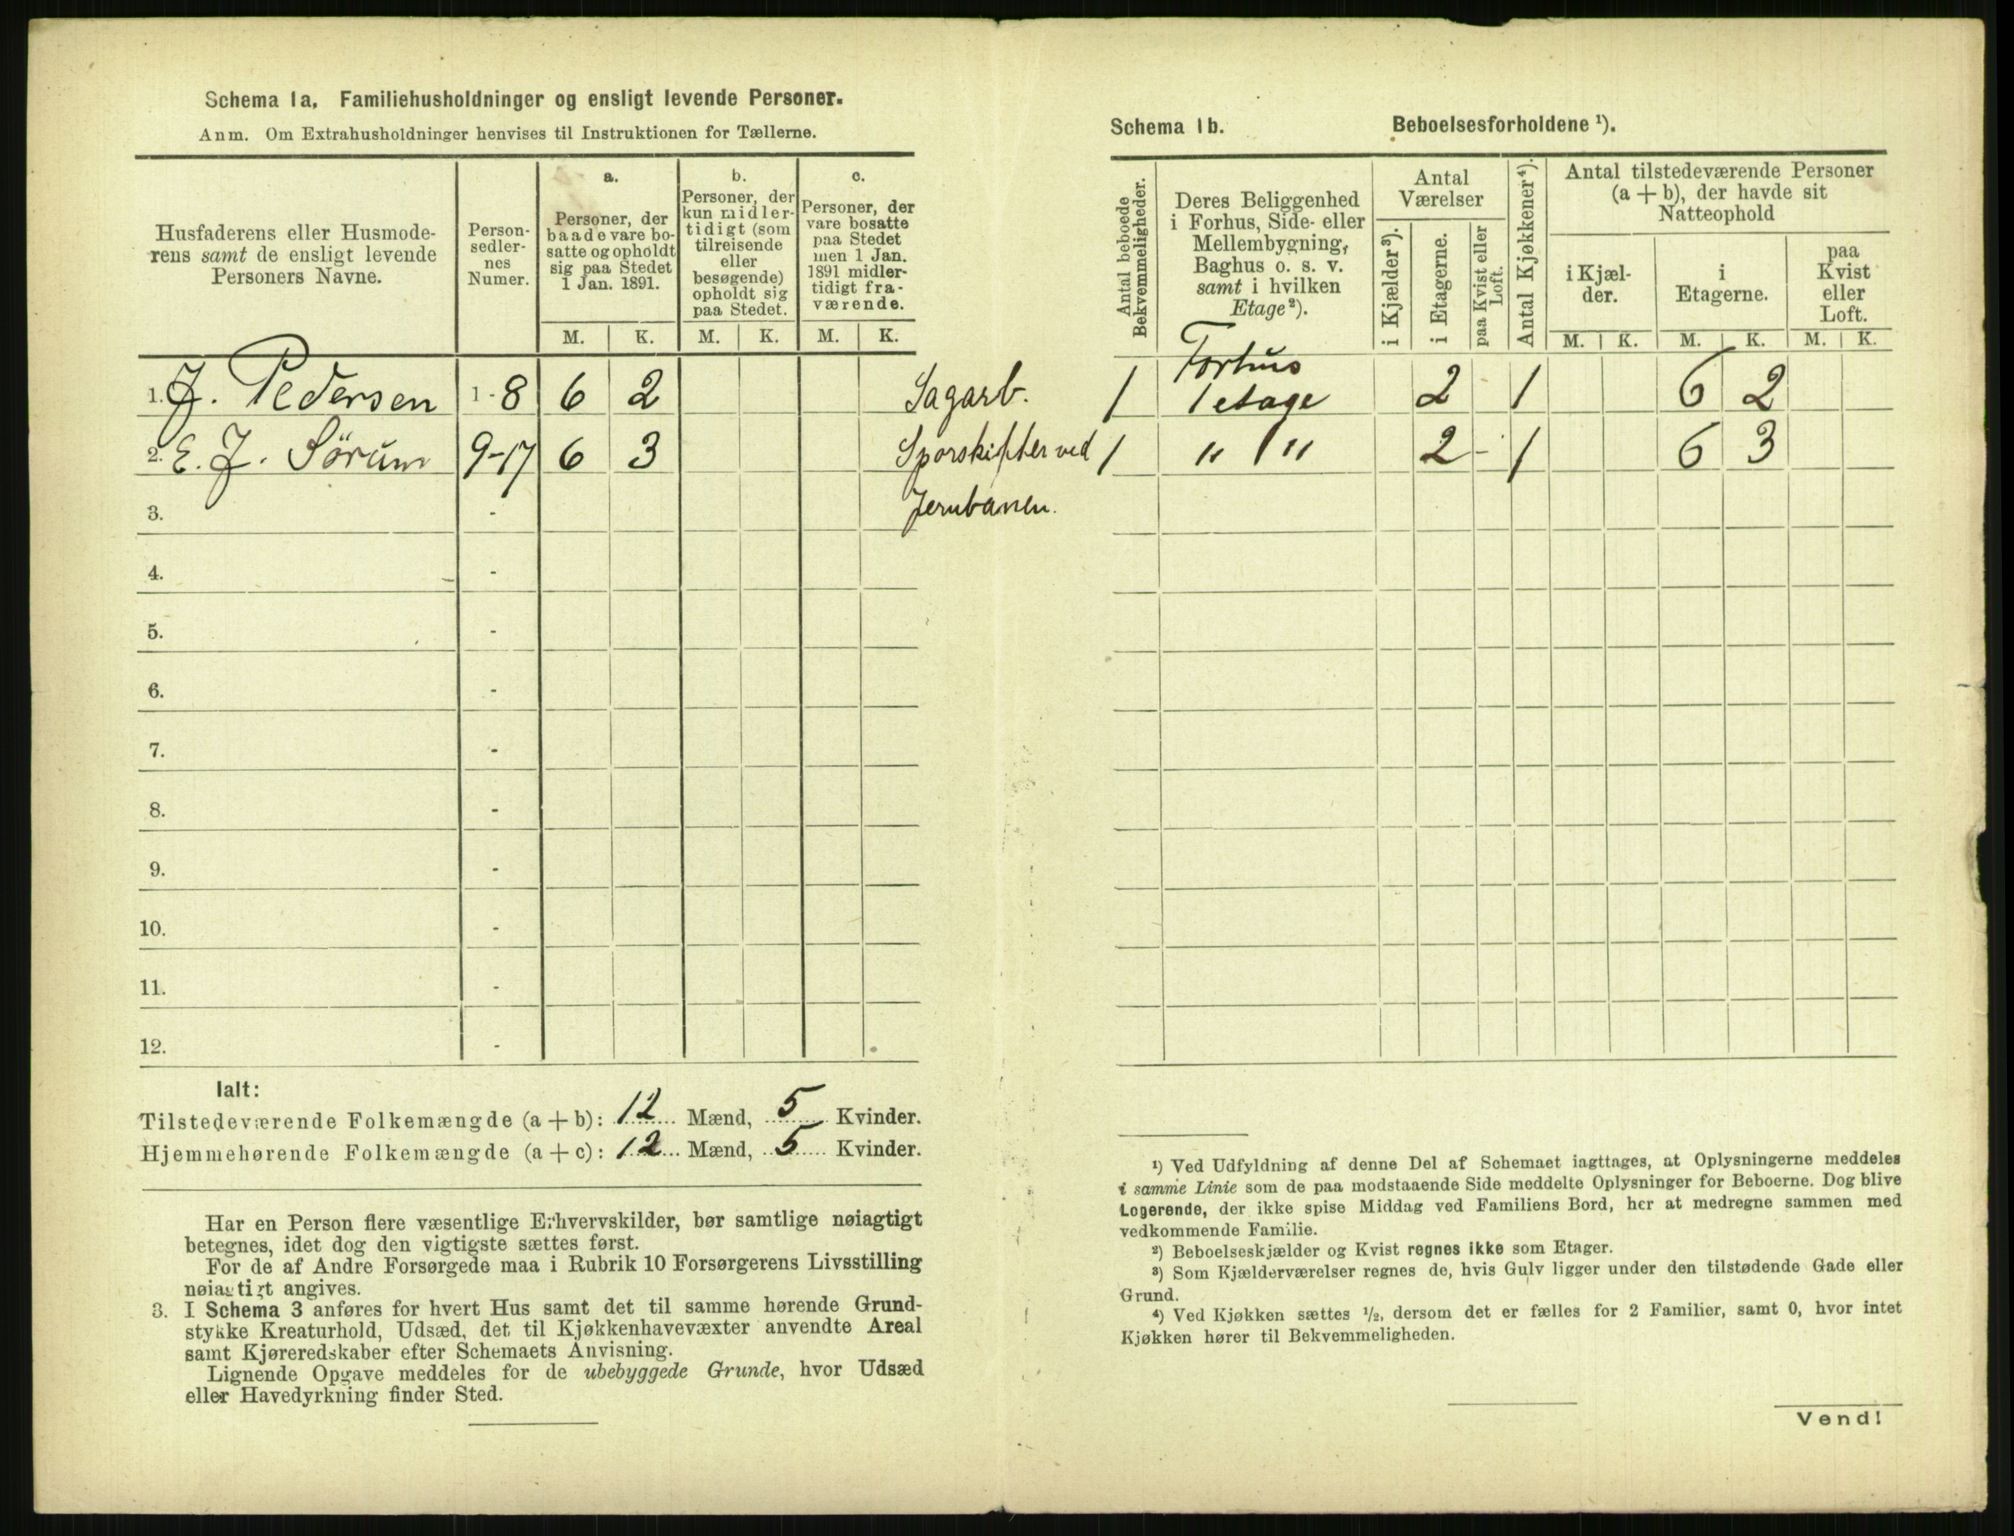 Schema 1a. Familiehusholdninger og ensligt levende Personer.
Anm. Om Extrahusholdninger henvises til Instruktionen for Tællerne.
Husfaderens eller Husmode-
rens samt de ensligt levende
Personers Navne.
Person-
sedler-
nes
Numer.
a.
Personer, der
baade vare bo-
satte og opholdt
sig paa Stedet
1 Jan. 1891.
b.
Personer, der
kun midler-
tidigt (som
tilreisende
eller
besøgende)
opholdt sig
paa Stedet.
c.
Personer, der
vare bosatte
paa Stedet
men 1 Jan.
1891 midler-
tidigt fra-
værende.
M. K. M. K. M. K.
1. J. Pedersen 1 - 8 6 2 Sagarb.
2. E. J. Sörum 9-17 6 3 Sporskifter ved
3. - Jernbanen.
4. -
5. -
6. -
7. -
8. -
9. -
10. -
11. -
12. -
Ialt:
Tilstedeværende Folkemængde (a + b): 12 Mænd, 5 Kvinder.
Hjemmehørende Folkemængde (a + c): 12 Mænd, 5 Kvinder.
Har en Person flere væsentlige Erhvervskilder, bør samtlige nøiagtigt
betegnes, idet dog den vigtigste sættes først.
For de af Andre Forsørgede maa i Rubrik 10 Forsørgerens Livsstilling
nøiagtigt angives.
3. I Schema 3 anføres for hvert Hus samt det til samme hørende Grund-
stykke Kreaturhold, Udsæd, det til Kjøkkenhavevæxter anvendte Areal
samt Kjøreredskaber efter Schemaets Anvisning.
Lignende Opgave meddeles for de ubebyggede Grunde, hvor Udsæd
eller Havedyrkning finder Sted.
Schema 1b. Beboelsesforholdene ¹).
Antal beboede
Bekvemmeligheder.
Deres Beliggenhed
i Forhus, Side- eller
Mellembygning,
Baghus o. s. v.
samt i hvilken
Etage²).
Antal
Værelser
i Kjælder³).
i Etagerne.
paa Kvist eller
Loft.
Antal Kjøkkener⁴).
Antal tilstedeværende Personer
(a + b), der havde sit
Natteophold
i Kjæl-
der.
i
Etagerne.
paa
Kvist
eller
Loft.
M. K. M. K. M. K.
Forhus
1 1 etage 2 - 1 6 2
1 " 1 " 2 - 1 6 3
¹) Ved Udfyldning af denne Del af Schemaet iagttages, at Oplysningerne meddeles
i samme Linie som de paa modstaaende Side meddelte Oplysninger for Beboerne. Dog blive
Logerende, der ikke spise Middag ved Familiens Bord, her at medregne sammen med
vedkommende Familie.
²) Beboelseskjælder og Kvist regnes ikke som Etager.
³) Som Kjælderværelser regnes de, hvis Gulv ligger under den tilstødende Gade eller
Grund.
⁴) Ved Kjøkken sættes ½, dersom det er fælles for 2 Familier, samt 0, hvor intet
Kjøkken hører til Bekvemmeligheden.
Vend!